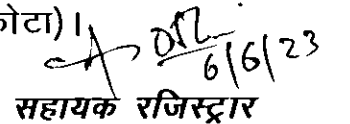 ोटा)।
6/6/23
सहायक रजिस्ट्रार